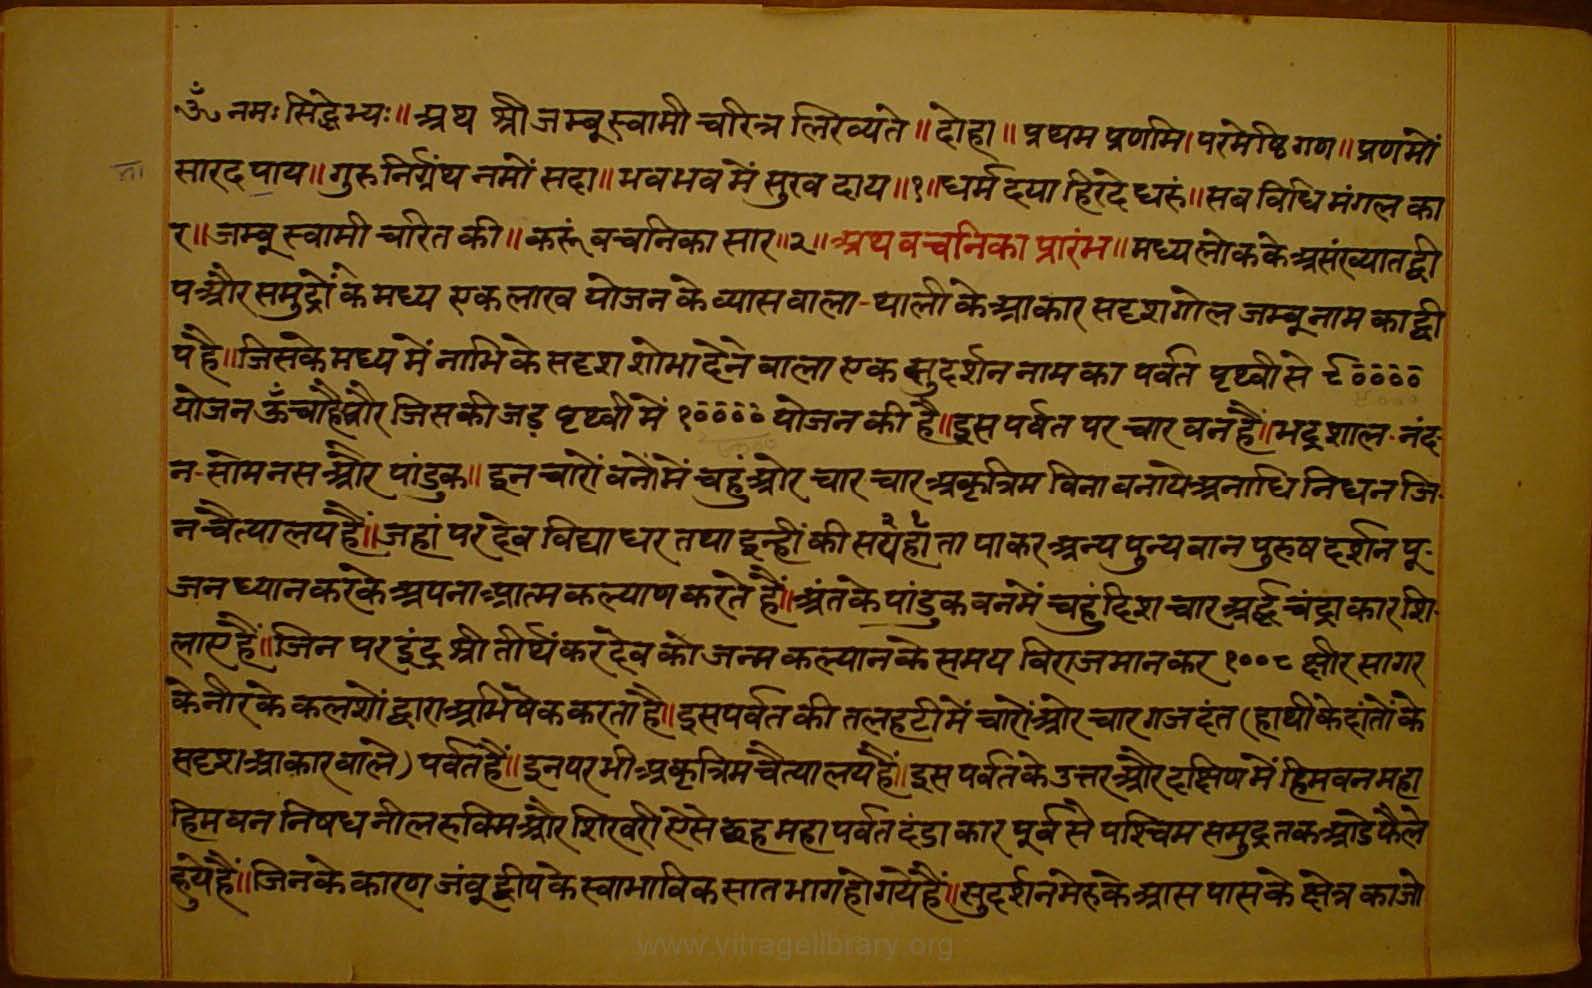 ॐ नमः सिद्धेभ्यः॥ अथ श्री जम्बूस्वामी चरित्र लिख्यते॥ दोहा॥ प्रथम प्रणमि। परमेष्ठि गण॥ प्रणमों
सारद पाय॥ गुरु निर्ग्रंथ नमों सदा॥ भव भव में सुख दाय॥१॥ धर्म दया हिरदे धरुं॥ सब विधि मंगल का
र॥ जम्बू स्वामी चरित की॥ करूं वचनिका सार॥२॥ अथ वचनिका प्रारंभ॥ मध्य लोक के असंख्यात द्वी
प और समुद्रों के मध्य एक लाख योजन के व्यास वाला-थाली के आकार सदृश गोल जम्बू नाम का द्वी
प है॥ जिसके मध्य में नाभि के सदृश शोभा देने वाला एक सुदर्शन नाम का पर्वत पृथ्वी से ९००००
योजन ऊँचा है और जिसकी जड़ पृथ्वी में १०००० योजन की है॥ इस पर्वत पर चार वन हैं॥ भद्रशाल-नंद-
न-सोमनस और पांडुक॥ इन चारों वनों में चहुं ओर चार-चार अकृत्रिम विना बनाये अनाधि निधन जि-
न चैत्यालय हैं॥ जहां पर देव विद्याधर तथा इन्हीं की सयहाँता पाकर अन्य पुन्यवान पुरुष दर्शन पू-
जन ध्यान करके अपना आत्म कल्याण करते हैं॥ अंत के पांडुक वन में चहुंदिश चार अर्द्ध चंद्राकार शि-
लाए हैं॥ जिन पर इंद्र श्री तीर्थंकर देव को जन्म कल्यान के समय विराजमान कर १००८ क्षीर सागर
के नीर के कलशों द्वारा अभिषेक करता है॥ इस पर्वत की तलहटी में चारों ओर चार गजदंत (हाथी के दांतों के
सदृश आकार वाले) पर्वत हैं॥ इन पर भी अकृत्रिम चैत्यालय हैं॥ इस पर्वत के उत्तर और दक्षिण में हिमवन महा
हिमवन निषध नील रुक्मि और शिखरी ऐसे छह महा पर्वत दंडाकार पूर्व से पश्चिम समुद्र तक आडे फैले
हुये हैं॥ जिनके कारण जंबू द्वीप के स्वाभाविक सात भाग हो गये हैं॥ सुदर्शन मेरु के आस पास के क्षेत्र का जो
www.vitragelibrary.org